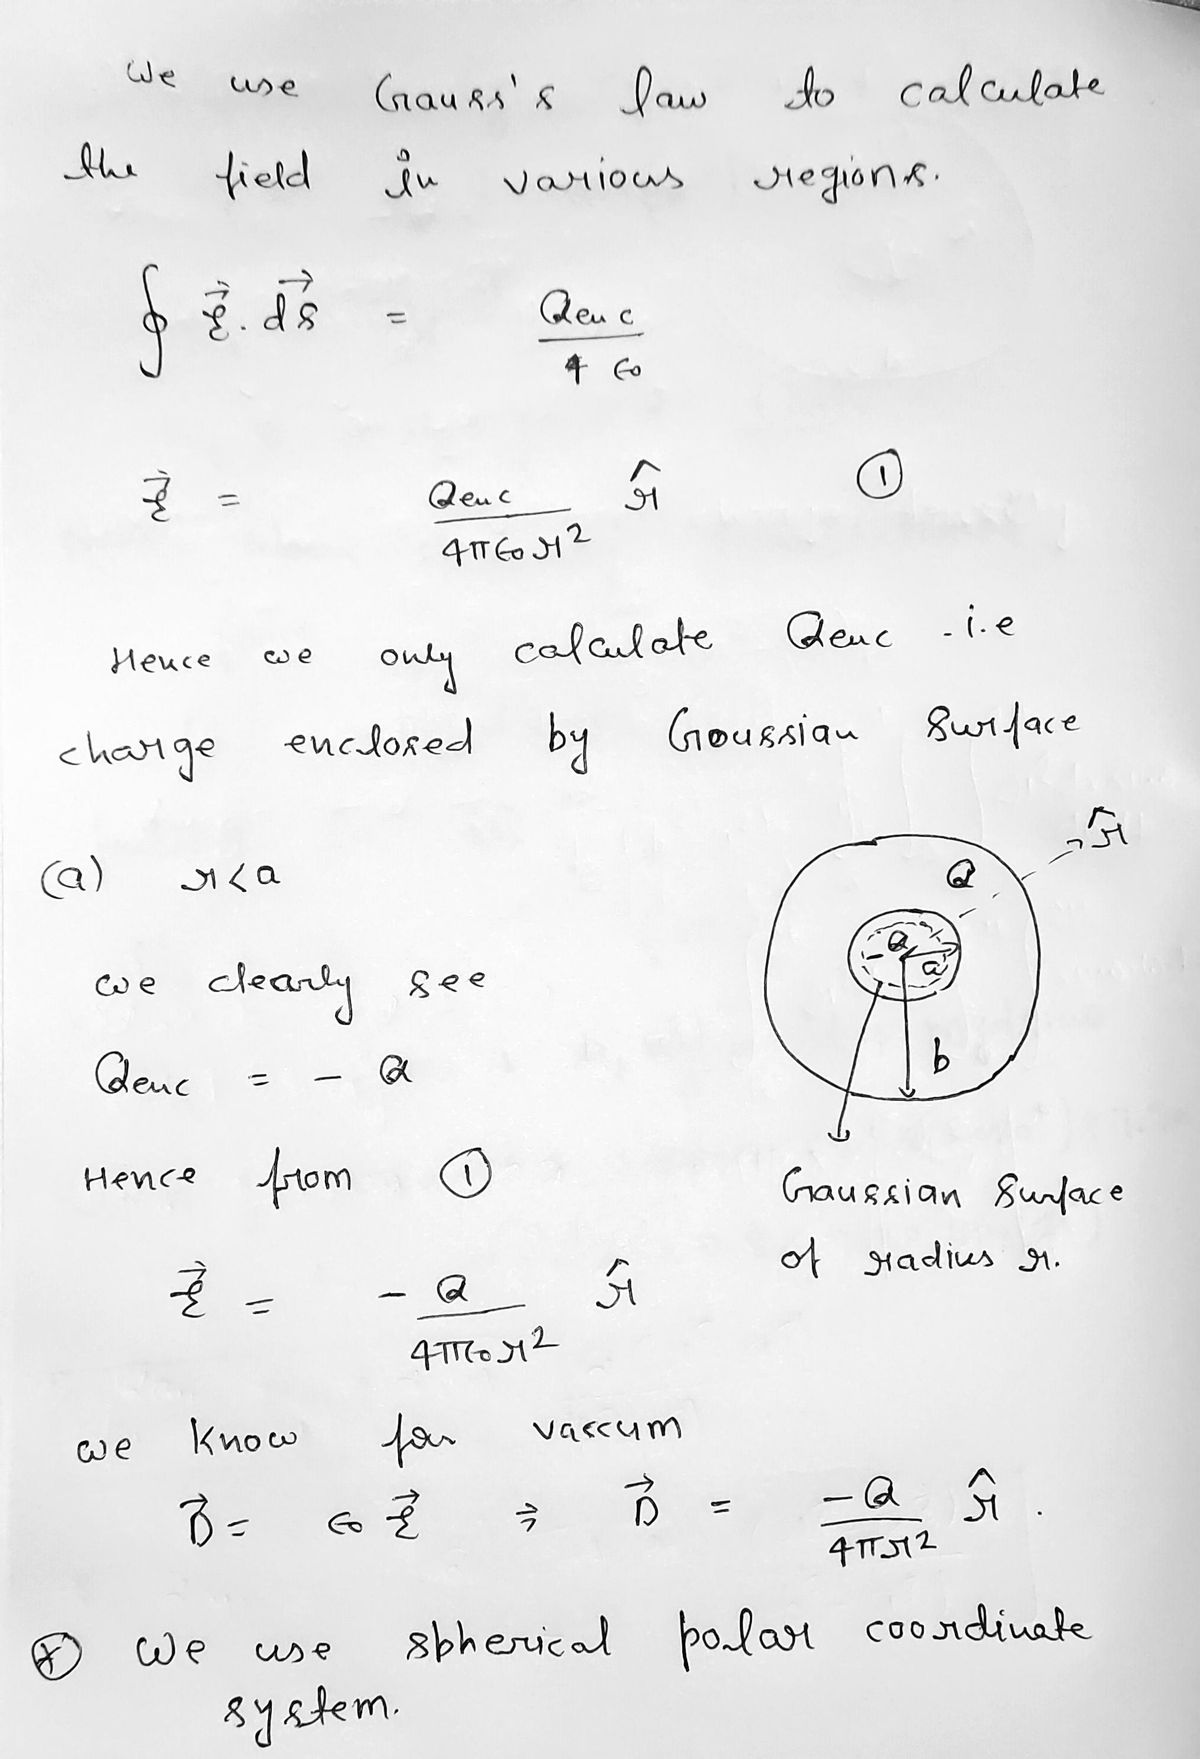 We use Gauss's law to calculate
the field in various regions.
∮ E⃗ . ds⃗ = Qenc / 4 ϵ0
E⃗ = Qenc / 4πϵ0r² r̂ ①
Hence we only calculate Qenc .i.e
charge enclosed by Goussian Surface
(a) r<a
we clearly see
Qenc = - Q
Hence from ①
E⃗ = - Q / 4πϵ0r² r̂
r̂
Q
- Q
a
b
Gaussian Surface
of radius r.
we know for vaccum
D⃗ = ϵ0 E⃗ ⇒ D⃗ = -Q / 4πr² r̂ .
⊛ We use spherical polar coordinate
system.